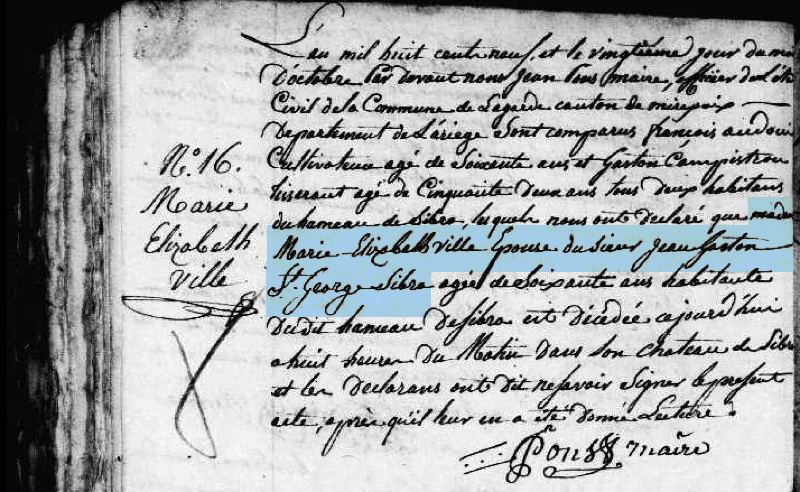 N.º 16.
Marie
Elizabeth
Ville
L'an mil huit cent neuf, et le vingtième jour du moi
D'octobre Par devant nous jean Pons maire, officier de L'ét
Civil de la Commune de Lagarde canton de mirepoix —
Departement de L'ariege Sont comparus françois audouin
Cultivateur agé de Soixante ans et Gaston Campistrou
tisserant agé de Cinquante deux ans tous deux habitans
du hameau de Sibra, lesquels nous ont declaré que madame
Marie Elizabeth ville Epouse du Sieur jean Gaston
S.t George Sibra agée de Soixante ans habitante
Dudit hameau de Sibra est décédée aujourd'hui
a huit heures du Matin dans son chateau de Sibra
et les Declarans ont dit ne savoir Signer le present
acte, après qu'il leur en a été donné Lecture.
Pons maire